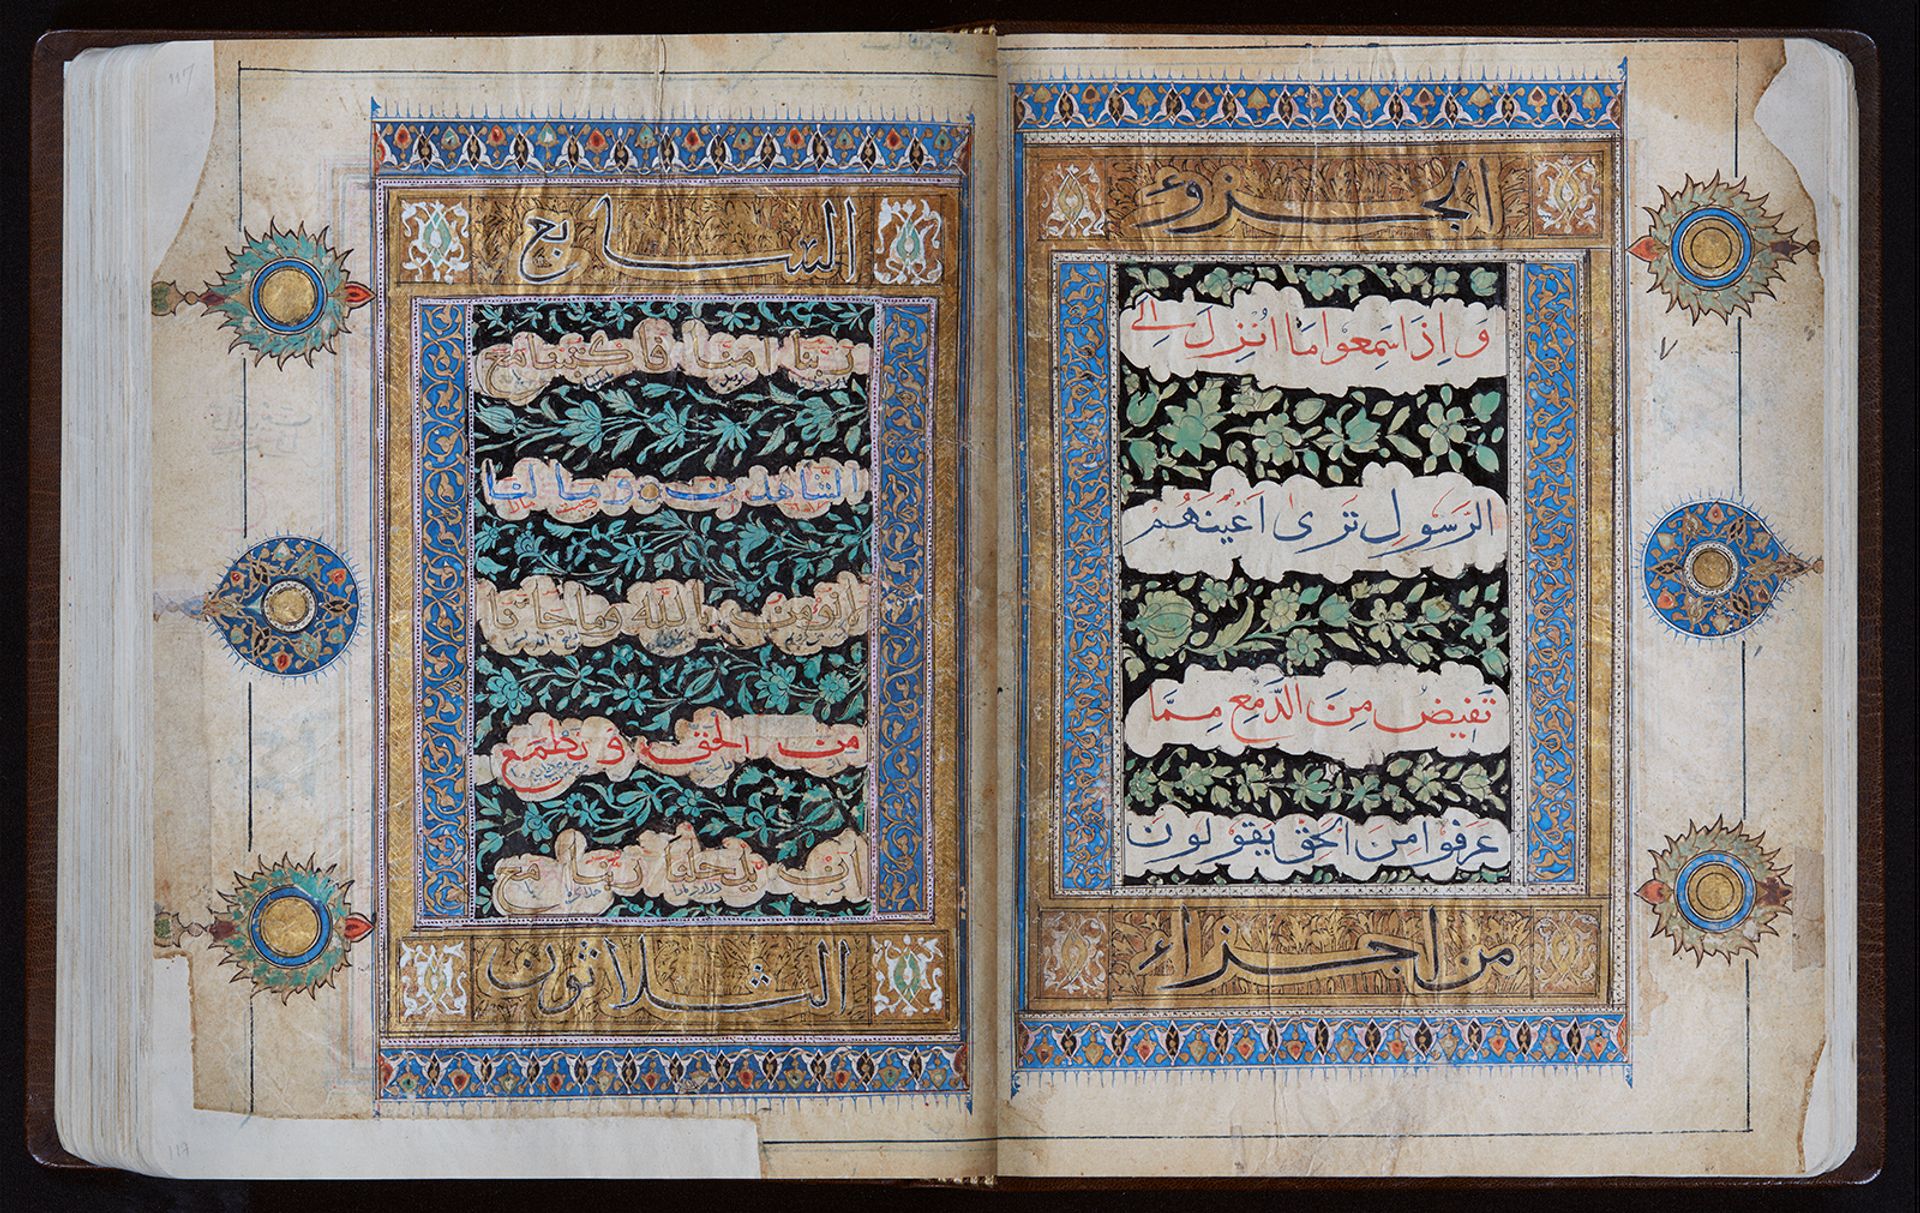 الجزؤ
وَاِذَا سَمِعوا مَا اُنْزِلَ اِلَى
الرَّسُولِ تَرَى اَعْيُنَهُمْ
تَفِيضُ مِنَ الدَّمْعِ مِمَّا
عَرَفوا مِنَ الْحَقِّ يَقُولُونَ
من اجزاء
117
السابع
ربّنا امنا فاكتبنا مع
الشّاهدين وما لنا
لا نؤمن بالله وما جانا
من الحق ونطمع
ان يدخلنا ربّنا مع
الثلاثون
117